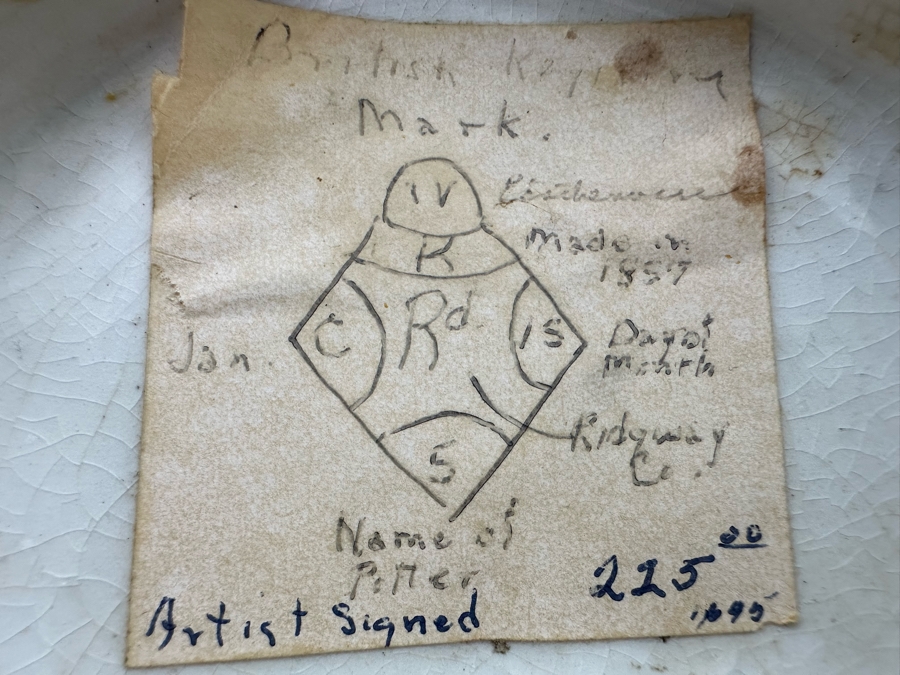 British Registry
Mark.
IV
Earthenware
R
Made in
1857
Rd
C
15
Jan.
Day of
Month
Ridgway
Co.
5
Name of
Potter
225 00
Artist Signed